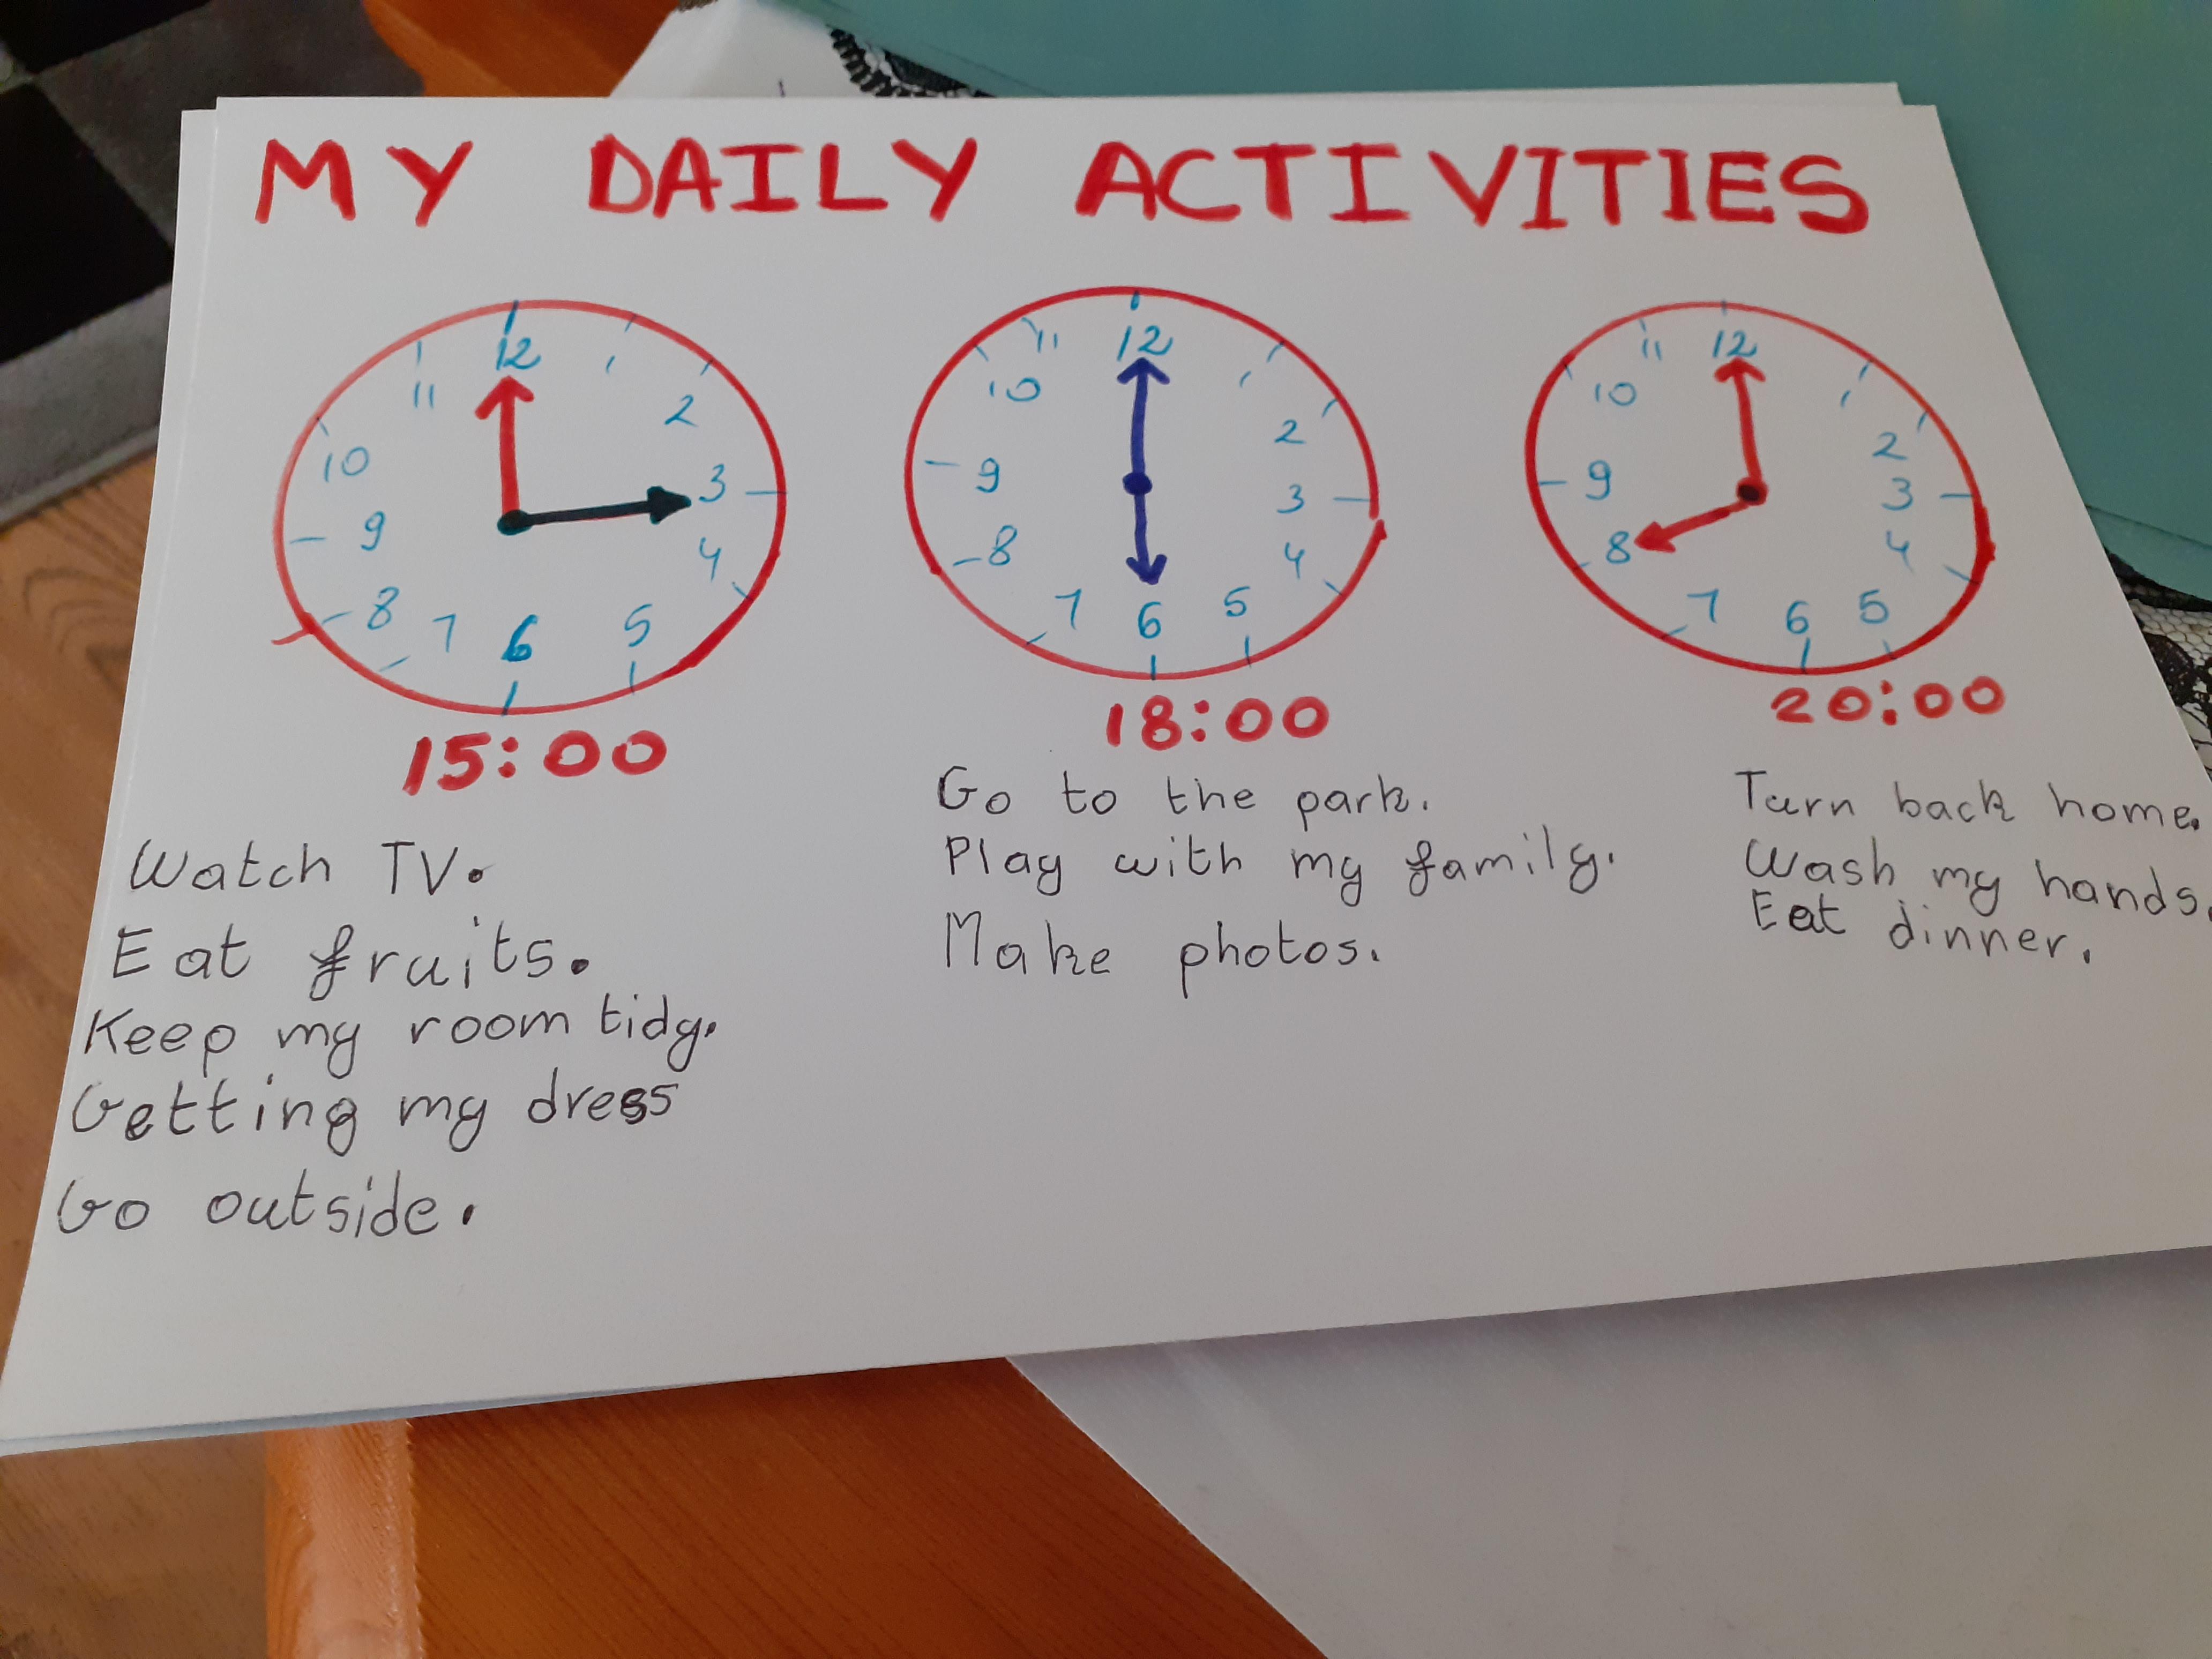 MY DAILY ACTIVITIES
12
1
2
3
4
5
6
7
8
9
10
11
15:00
Watch TV.
Eat fruits.
Keep my room tidy.
Getting my dress
Go outside.
12
1
2
3
4
5
6
7
8
9
10
11
18:00
Go to the park.
Play with my family.
Make photos.
12
1
2
3
4
5
6
7
8
9
10
11
20:00
Turn back home.
Wash my hands.
Eat dinner.